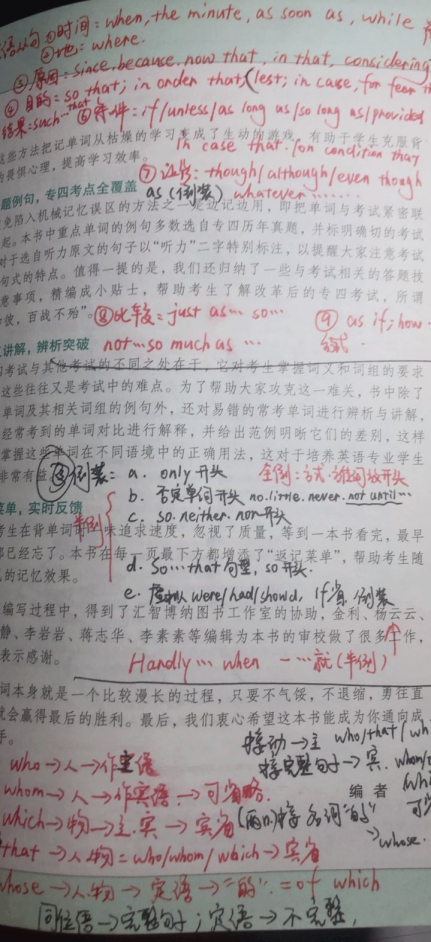 语从句①时间:when, the minute, as soon as, while
②地:where.
③原因:since, because, now that, in that, considering
④目的:so that; in order that; (lest; in case, for fear th
结果:such…that ⑥条件:if/unless/as long as/so long as/provided
这些方法把记单词从枯燥的学习变成了生动的游戏,有助于学生克服背
in case that. (on condition that
的畏惧心理,提高学习效率。
⑦让步:though/although/even though
题例句,专四考点全覆盖
as (倒装) whatever……
免陷入机械记忆误区的方法之一是边记边用,即把单词与考试紧密联
起。本书中重点单词的例句多数选自专四历年真题,并标明确切的考试
对于选自听力原文的句子以“听力”二字特别标注,以提醒大家注意考试
句式的特点。值得一提的是,我们还归纳了一些与考试相关的答题技
意事项,精编成小贴士,帮助考生了解改革后的专四考试,所谓
彼,百战不殆”。⑧比较:just as… so… ⑨ as if; how
讲解,辨析突破 not…so much as … 方式
考试与其他考试的不同之处在于,它对考生掌握词义和词组的要求
这些往往又是考试中的难点。为了帮助大家攻克这一难关,书中除了
单词及其相关词组的例句外,还对易错的常考单词进行辨析与讲解,
经常考到的单词对比进行解释,并给出范例明晰它们的差别,这样
掌握这些单词在不同语境中的正确用法,这对于培养英语专业学生
非常有益
倒装: a. only 开头 全倒:
b. 否定单词开头 no. little. never. not until…
菜单,实时反馈
半倒 c. so. neither. nor 开头
考生在背单词时一味追求速度,忽视了质量,等到一本书看完,最早
都已经忘了。本书在每一页最下方都增添了“返记菜单”,帮助考生随
的记忆效果。
d. so…that 句型, so 开头.
e. were/had/should, if 省, 倒装
编写过程中,得到了汇智博纳图书工作室的协助,金利、杨云云、
静、李岩岩、蒋志华、李素素等编辑为本书的审校做了很多工作,
表示感谢。
Hardly… when …就(半倒)
词本身就是一个比较漫长的过程,只要不气馁,不退缩,勇往直
就会赢得最后的胜利。最后,我们衷心希望这本书能成为你通向成
手。
接动→主 who/that/wh
who→人→作主语
接完整句子→宾. whom/
whom→人→作宾语→可省略.
编 者
which→物→主.宾→宾省
接名词“的”
→whose.
that→人.物=who/whom/which→宾省
whose→人.物→定语→“的”.=of which
同位语→完整句子;定语→不完整,